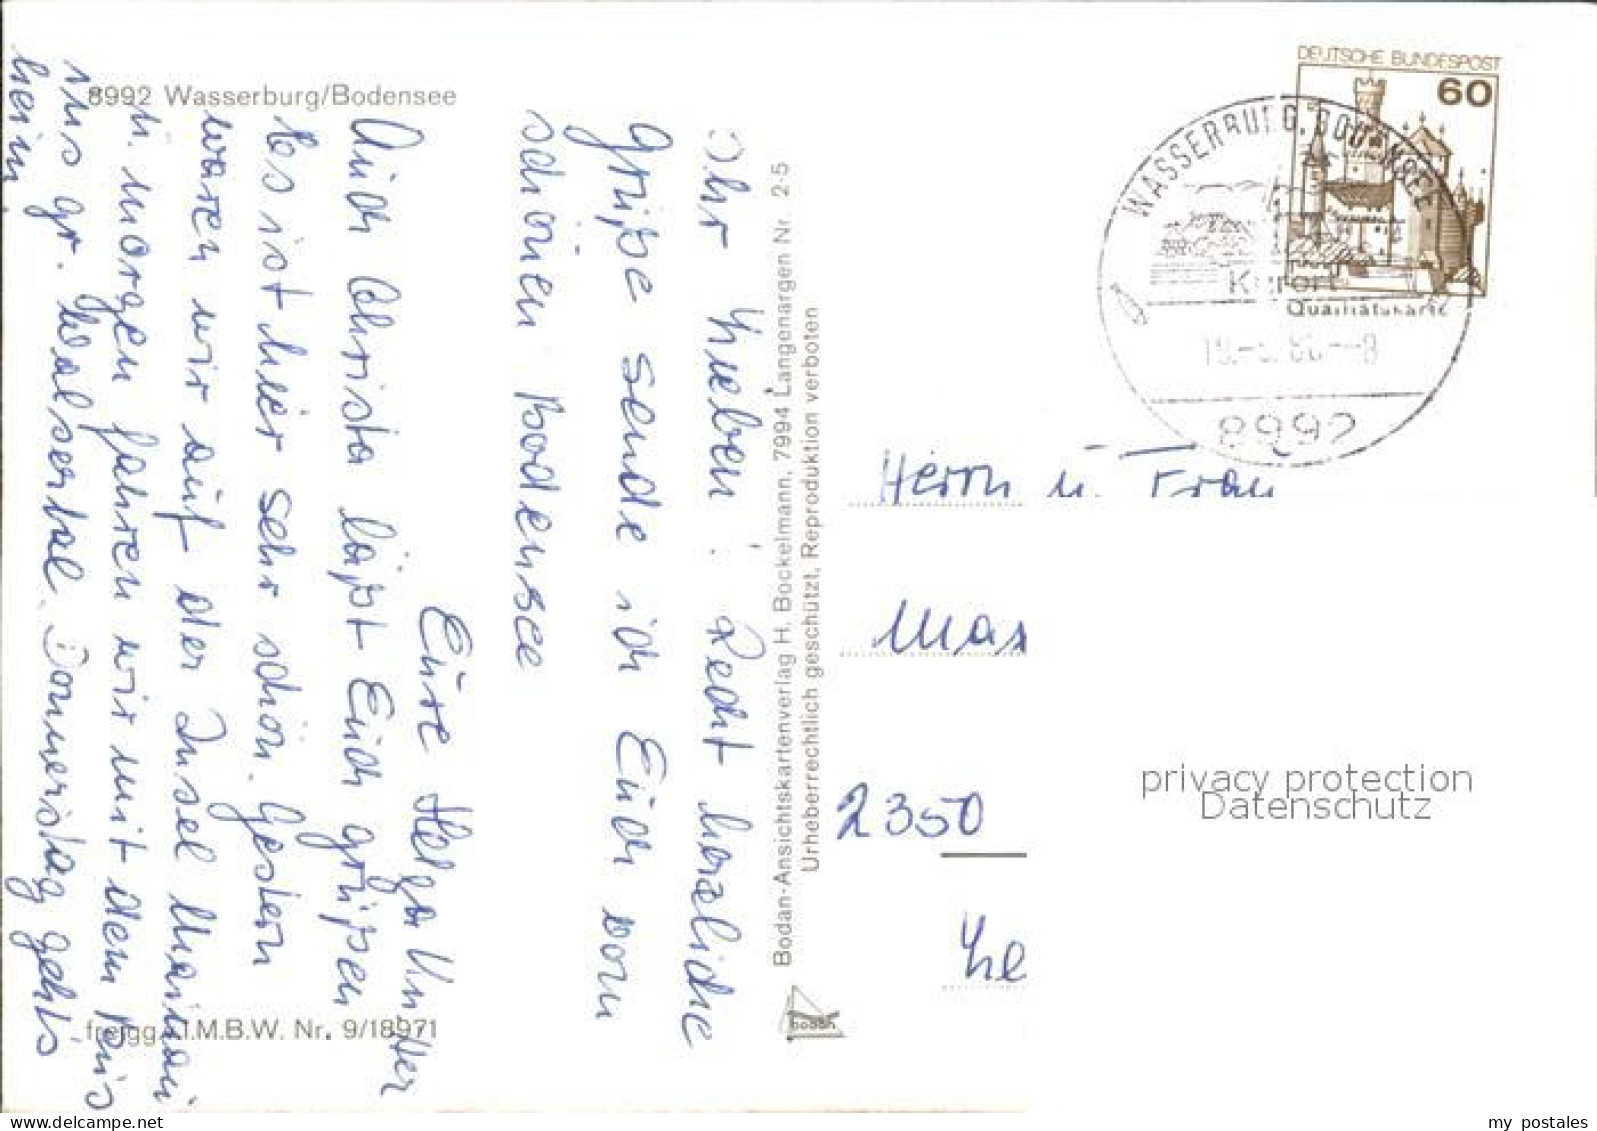 8992 Wasserburg/Bodensee
Ihr Lieben! Recht herzliche
Grüße sende ich Euch vom
schönen Bodensee
Eure Helga
Auch Christa läßt Euch grüßen
Es ist hier sehr schön. Gestern
waren wir auf der Insel Mainau
u. morgen fahren wir mit dem Bus
ins gr. Walsertal. Donnerstag geht's
heim.
freigg. I.M.B.W. Nr. 9/18971
Bodan-Ansichtskartenverlag H. Bockelmann, 7994 Langenargen Nr. 2-5
Urheberrechtlich geschützt, Reproduktion verboten
bodan
DEUTSCHE BUNDESPOST
60
WASSERBURG, BODENSEE
Kurort
Qualitätskarte
8992
Herrn u. Frau
Max
2350
privacy protection
Datenschutz
my postales